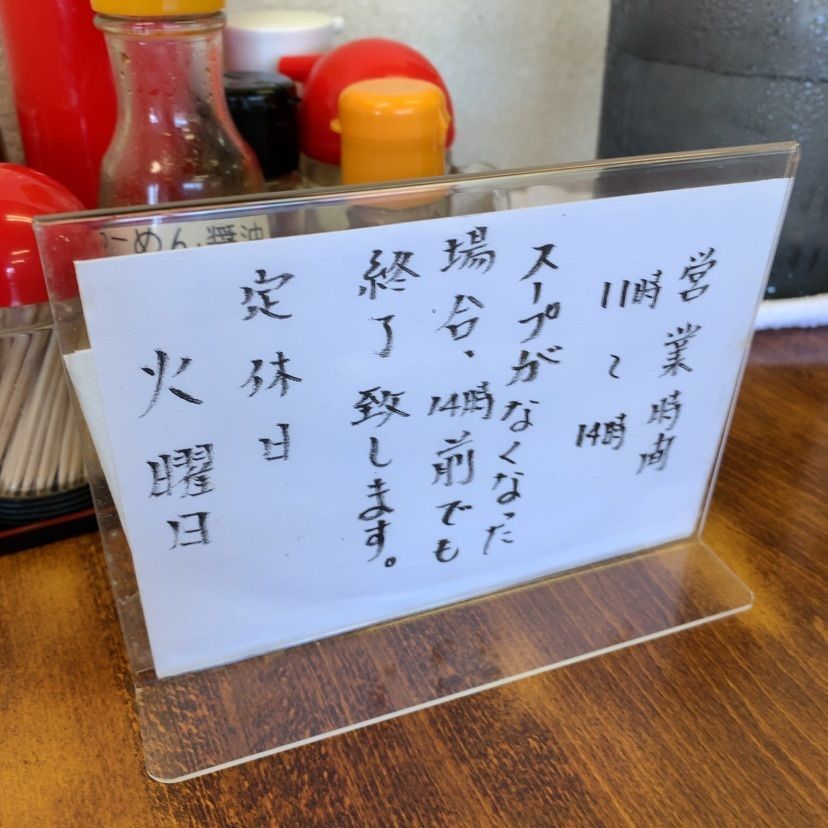 営業時間
11時~14時
スープがなくなった
場合、14時前でも
終了致します。
定休日
火曜日
らーめん醤油